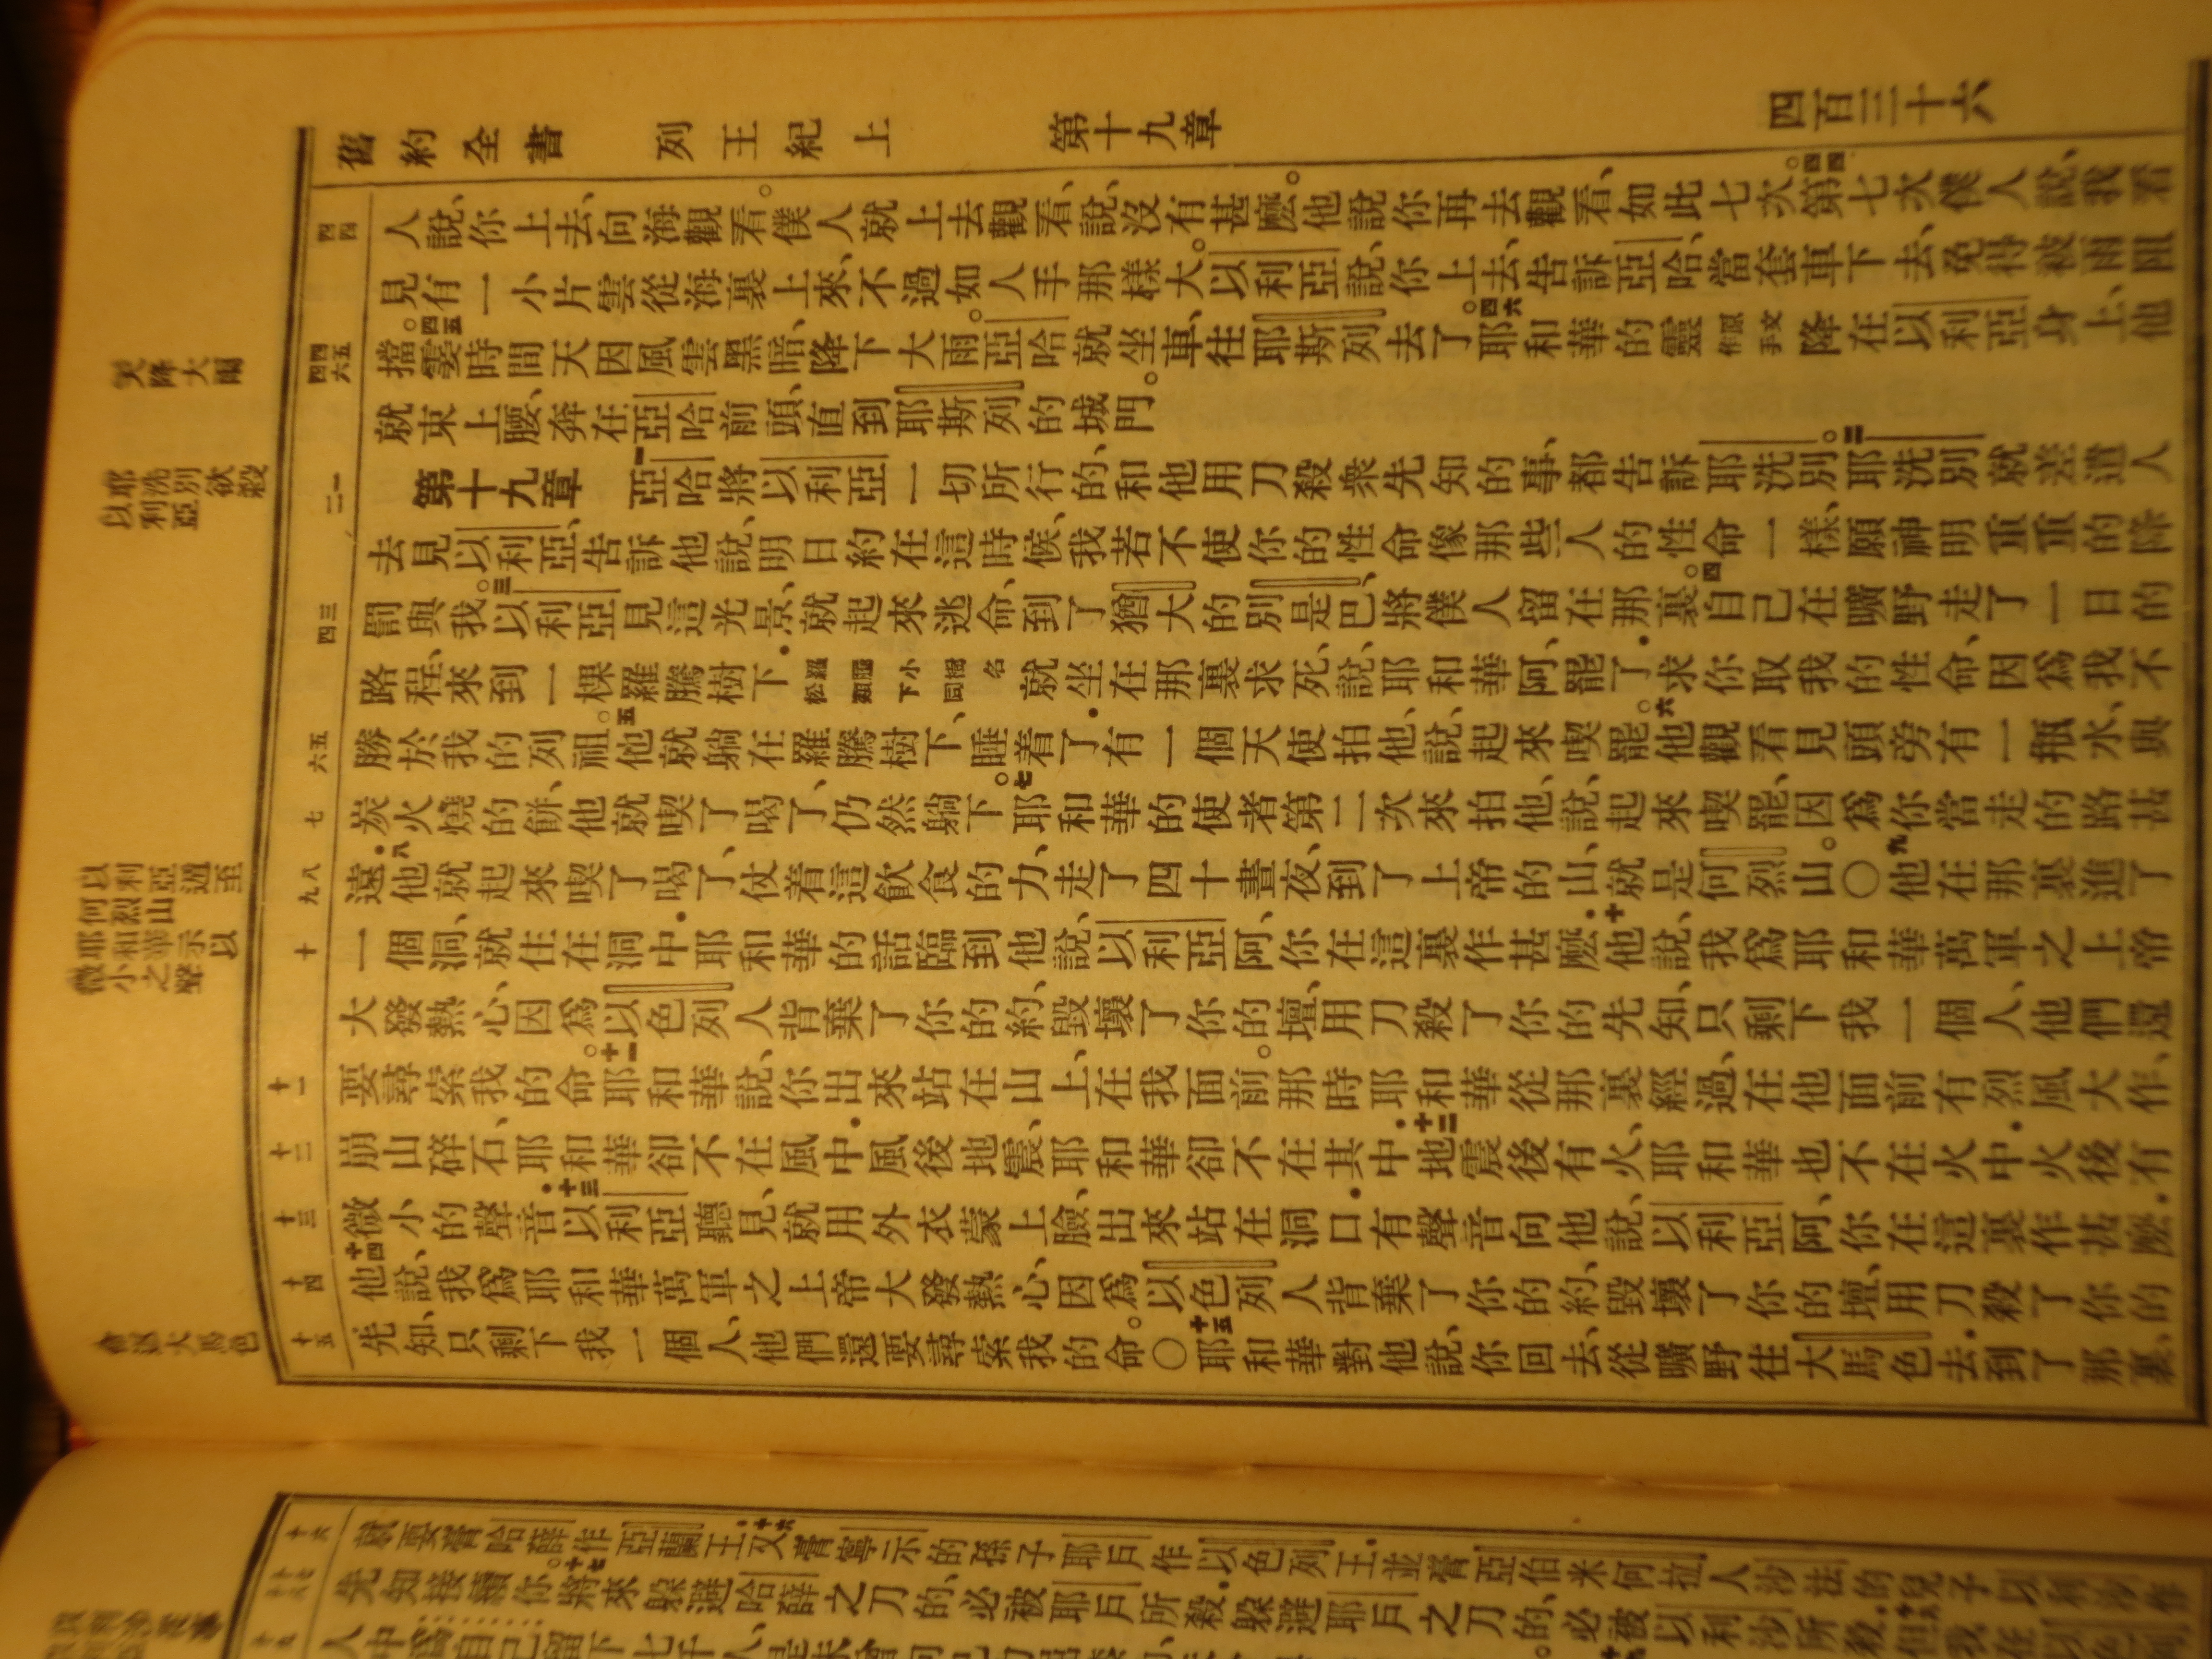 舊約全書 列王紀上 第十九章 四百三十六
四四
人說、你上去、向海觀看。僕人就上去觀看、說、沒有甚麼。他說、你再去觀看、如此七次。四四第七次僕人說、我看
見有一小片雲從海裏上來、不過如人手那樣大。以利亞說、你上去、告訴亞哈、當套車下去、免得被雨阻
四五
四六
擋。四五霎時間天因風雲黑暗、降下大雨。亞哈就坐車、往耶斯列去了。四六耶和華的靈原文作手降在以利亞身上、他
就束上腰、奔在亞哈前頭、直到耶斯列的城門。
天降大雨
一
二
第十九章 一亞哈將以利亞一切所行的、和他用刀殺衆先知的事、都告訴耶洗別。二耶洗別就差遣人
耶洗別欲殺
以利亞
去見以利亞、告訴他說、明日約在這時候、我若不使你的性命像那些人的性命一樣、願神明重重的降
三
四
罰與我。三以利亞見這光景、就起來逃命、到了猶大的別是巴、將僕人留在那裏。四自己在曠野走了一日的
路程、來到一棵羅騰樹下．羅騰小樹名松類下同就坐在那裏求死、說、耶和華阿、罷了．求你取我的性命、因爲我不
五
六
勝於我的列祖。五他就躺在羅騰樹下、睡着了．有一個天使拍他、說、起來喫罷。六他觀看見頭旁有一瓶水、與
七
炭火燒的餅、他就喫了喝了、仍然躺下。七耶和華的使者第二次來拍他、說、起來喫罷、因爲你當走的路甚
八
九
遠．八他就起來喫了喝了、仗着這飲食的力、走了四十晝夜、到了上帝的山、就是何烈山。〇九他在那裏進了
以利亞遁至
何烈山
耶和華示以
微小之聲
十
一個洞、就住在洞中．耶和華的話臨到他說、以利亞阿、你在這裏作甚麼．十他說、我爲耶和華萬軍之上帝
大發熱心、因爲以色列人背棄了你的約、毀壞了你的壇、用刀殺了你的先知、只剩下我一個人、他們還
十一
要尋索我的命。十一耶和華說、你出來站在山上、在我面前。那時耶和華從那裏經過、在他面前有烈風大作、
十二
崩山碎石、耶和華卻不在風中．風後地震、耶和華卻不在其中．十二地震後有火、耶和華也不在火中．火後有
十三
微小的聲音．十三以利亞聽見、就用外衣蒙上臉、出來站在洞口．有聲音向他說、以利亞阿、你在這裏作甚麼．
十四
十四他說、我爲耶和華萬軍之上帝大發熱心、因爲以色列人背棄了你的約、毀壞了你的壇、用刀殺了你的
十五
先知、只剩下我一個人、他們還要尋索我的命。〇十五耶和華對他說、你回去、從曠野往大馬色去．到了那裏、
大馬色
十六
就要膏哈薛作亞蘭王．十六又膏寧示的孫子耶戶作以色列王．並膏亞伯米何拉人沙法的兒子以利沙作
先知接續你。十七將來躲避哈薛之刀的、必被耶戶所殺．躲避耶戶之刀的、必被以利沙所殺．
人中爲自己留下七千人、是未曾向